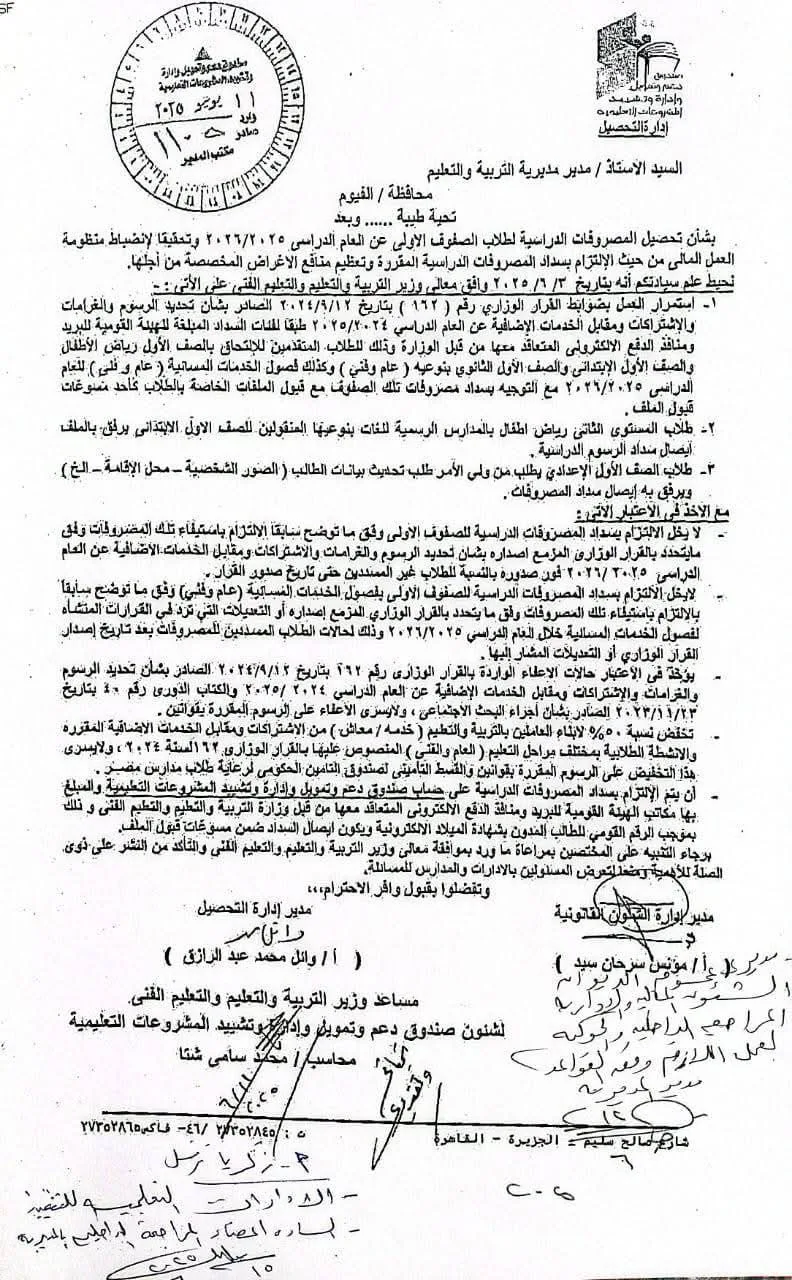 SF
صندوق
دعم وتمويل
وإدارة وتشييد
المشروعات التعليمية
إدارة التحصيل
صندوق دعم وتمويل وإدارة
وتشييد المشروعات التعليمية
١١ يونيو ٢٠٢٥
وارد
صادر
مكتب المدير
السيد الأستاذ / مدير مديرية التربية والتعليم
محافظة / الفيوم
تحية طيبة ...... وبعد
بشأن تحصيل المصروفات الدراسية لطلاب الصفوف الاولى عن العام الدراسى ٢٠٢٦/٢٠٢٥ وتحقيقا لإنضباط منظومة
العمل المالى من حيث الإلتزام بسداد المصروفات الدراسية المقررة وتعظيم منافع الاغراض المخصصة من أجلها.
نحيط علم سيادتكم أنه بتاريخ ٢٠٢٥/٦/٣ وافق معالى وزير التربية والتعليم والتعليم الفنى على الأتى :-
١- إستمرار العمل بضوابط القرار الوزاري رقم ( ١٦٢ ) بتاريخ ٢٠٢٤/٩/١٢ الصادر بشأن تحديد الرسوم والغرامات
والإشتراكات ومقابل الخدمات الإضافية عن العام الدراسي ٢٠٢٥/٢٠٢٤ طبقا لفئات السداد المبلغة للهيئة القومية للبريد
ومنافذ الدفع الالكترونى المتعاقد معها من قبل الوزارة وذلك للطلاب المتقدمين للإلتحاق بالصف الأول رياض الأطفال
والصف الأول الإبتدائى والصف الأول الثانوي بنوعيه ( عام وفني ) وكذلك فصول الخدمات المسائية ( عام و فنى ) للعام
الدراسى ٢٠٢٦/٢٠٢٥ مع التوجيه بسداد مصروفات تلك الصفوف مع قبول الملفات الخاصة بالطلاب كأحد مسوغات
قبول الملف .
٢- طلاب المستوى الثانى رياض اطفال بالمدارس الرسمية للغات بنوعيها المنقولين للصف الاول الابتدائى يرفق بالملف
ايصال سداد الرسوم الدراسية .
٣- طلاب الصف الأول الإعدادي يطلب من ولي الأمر طلب تحديث بيانات الطالب ( الصور الشخصية – محل الإقامة – الخ )
ويرفق به إيصال سداد المصروفات .
مع الأخذ فى الأعتبار الأتى :
- لا يخل الالتزام بسداد المصروفات الدراسية للصفوف الاولى وفق ما توضح سابقاً الإلتزام باستيفاء تلك المصروفات وفق
مايتحدد بالقرار الوزارى المزمع اصداره بشان تحديد الرسوم والغرامات والاشتراكات ومقابل الخدمات الاضافية عن العام
الدراسى ٢٠٢٦/٢٠٢٥ فور صدوره بالنسبة للطلاب غير المسددين حتى تاريخ صدور القرار .
- لايخل الإلتزام بسداد المصروفات الدراسية للصفوف الأولى بفصول الخدمات المسائية (عام وفني) وفق ما توضح سابقاً
بالالتزام باستيفاء تلك المصروفات وفق ما يتحدد بالقرار الوزاري المزمع إصداره أو التعديلات التى ترد فى القرارات المنشأه
لفصول الخدمات المسائية خلال العام الدراسى ٢٠٢٦/٢٠٢٥ وذلك لحالات الطلاب المسددين للمصروفات بعد تاريخ إصدار
القرار الوزاري أو التعديلات المشار إليها .
- يؤخذ فى الأعتبار حالات الاعفاء الواردة بالقرار الوزارى رقم ١٦٢ بتاريخ ٢٠٢٤/٩/١٢ الصادر بشأن تحديد الرسوم
والغرامات والإشتراكات ومقابل الخدمات الإضافية عن العام الدراسي ٢٠٢٤ /٢٠٢٥ والكتاب الدورى رقم ٤٠ بتاريخ
٢٠٢٣/١١/٢٣ الصادر بشأن أجراء البحث الأجتماعى ، ولايسرى الأعفاء على الرسوم المقررة بقوانين .
- تخفض نسبة ٥٠% لأبناء العاملين بالتربية والتعليم ( خدمه / معاش ) من الاشتراكات ومقابل الخدمات الاضافية المقرره
والانشطة الطلابية بمختلف مراحل التعليم ( العام والفنى ) المنصوص عليها بالقرار الوزارى ١٦٢ لسنة ٢٠٢٤ ، ولايسرى
هذا التخفيض على الرسوم المقررة بقوانين والقسط التأمينى لصندوق التامين الحكومى لرعاية طلاب مدارس مصر .
- أن يتم الإلتزام بسداد المصروفات الدراسية على حساب صندوق دعم وتمويل وإدارة وتشييد المشروعات التعليمية والمبلغ
بها مكاتب الهيئة القومية للبريد ومنافذ الدفع الالكترونى المتعاقد معها من قبل وزارة التربية والتعليم والتعليم الفنى و ذلك
بموجب الرقم القومي للطالب المدون بشهادة الميلاد الالكترونية ويكون ايصال السداد ضمن مسوغات قبول الملف.
برجاء التنبيه على المختصين بمراعاة ما ورد بموافقة معالى وزير التربية والتعليم والتعليم الفنى والتأكد من النشر على ذوى
الصلة للأهمية ومنعا لتعرض المسئولين بالادارات والمدارس للمساءلة.
وتفضلوا بقبول وافر الاحترام،،،
مدير إدارة الشئون القانونية
مدير إدارة التحصيل
( أ / مؤنس سرحان سيد )
( أ / وائل محمد عبد الرازق )
مساعد وزير التربية والتعليم والتعليم الفنى
لشئون صندوق دعم وتمويل وإدارة وتشييد المشروعات التعليمية
محاسب / محمد سامى شتا
الشئون المالية والادارية
المراجعة الداخلية والحوكمة
لعمل اللازم وفقا للقواعد
مدير المديرية
شارع صالح سليم – الجزيرة – القاهرة
ت : ٢٧٣٥٢٨٤٥ /٤٦- فاكس ٢٧٣٥٢٨٦٥
٢٠٢٥
- الادارات التعليمية للتنفيذ
- السادة اعضاء المراجعة الداخلية بالمديرية